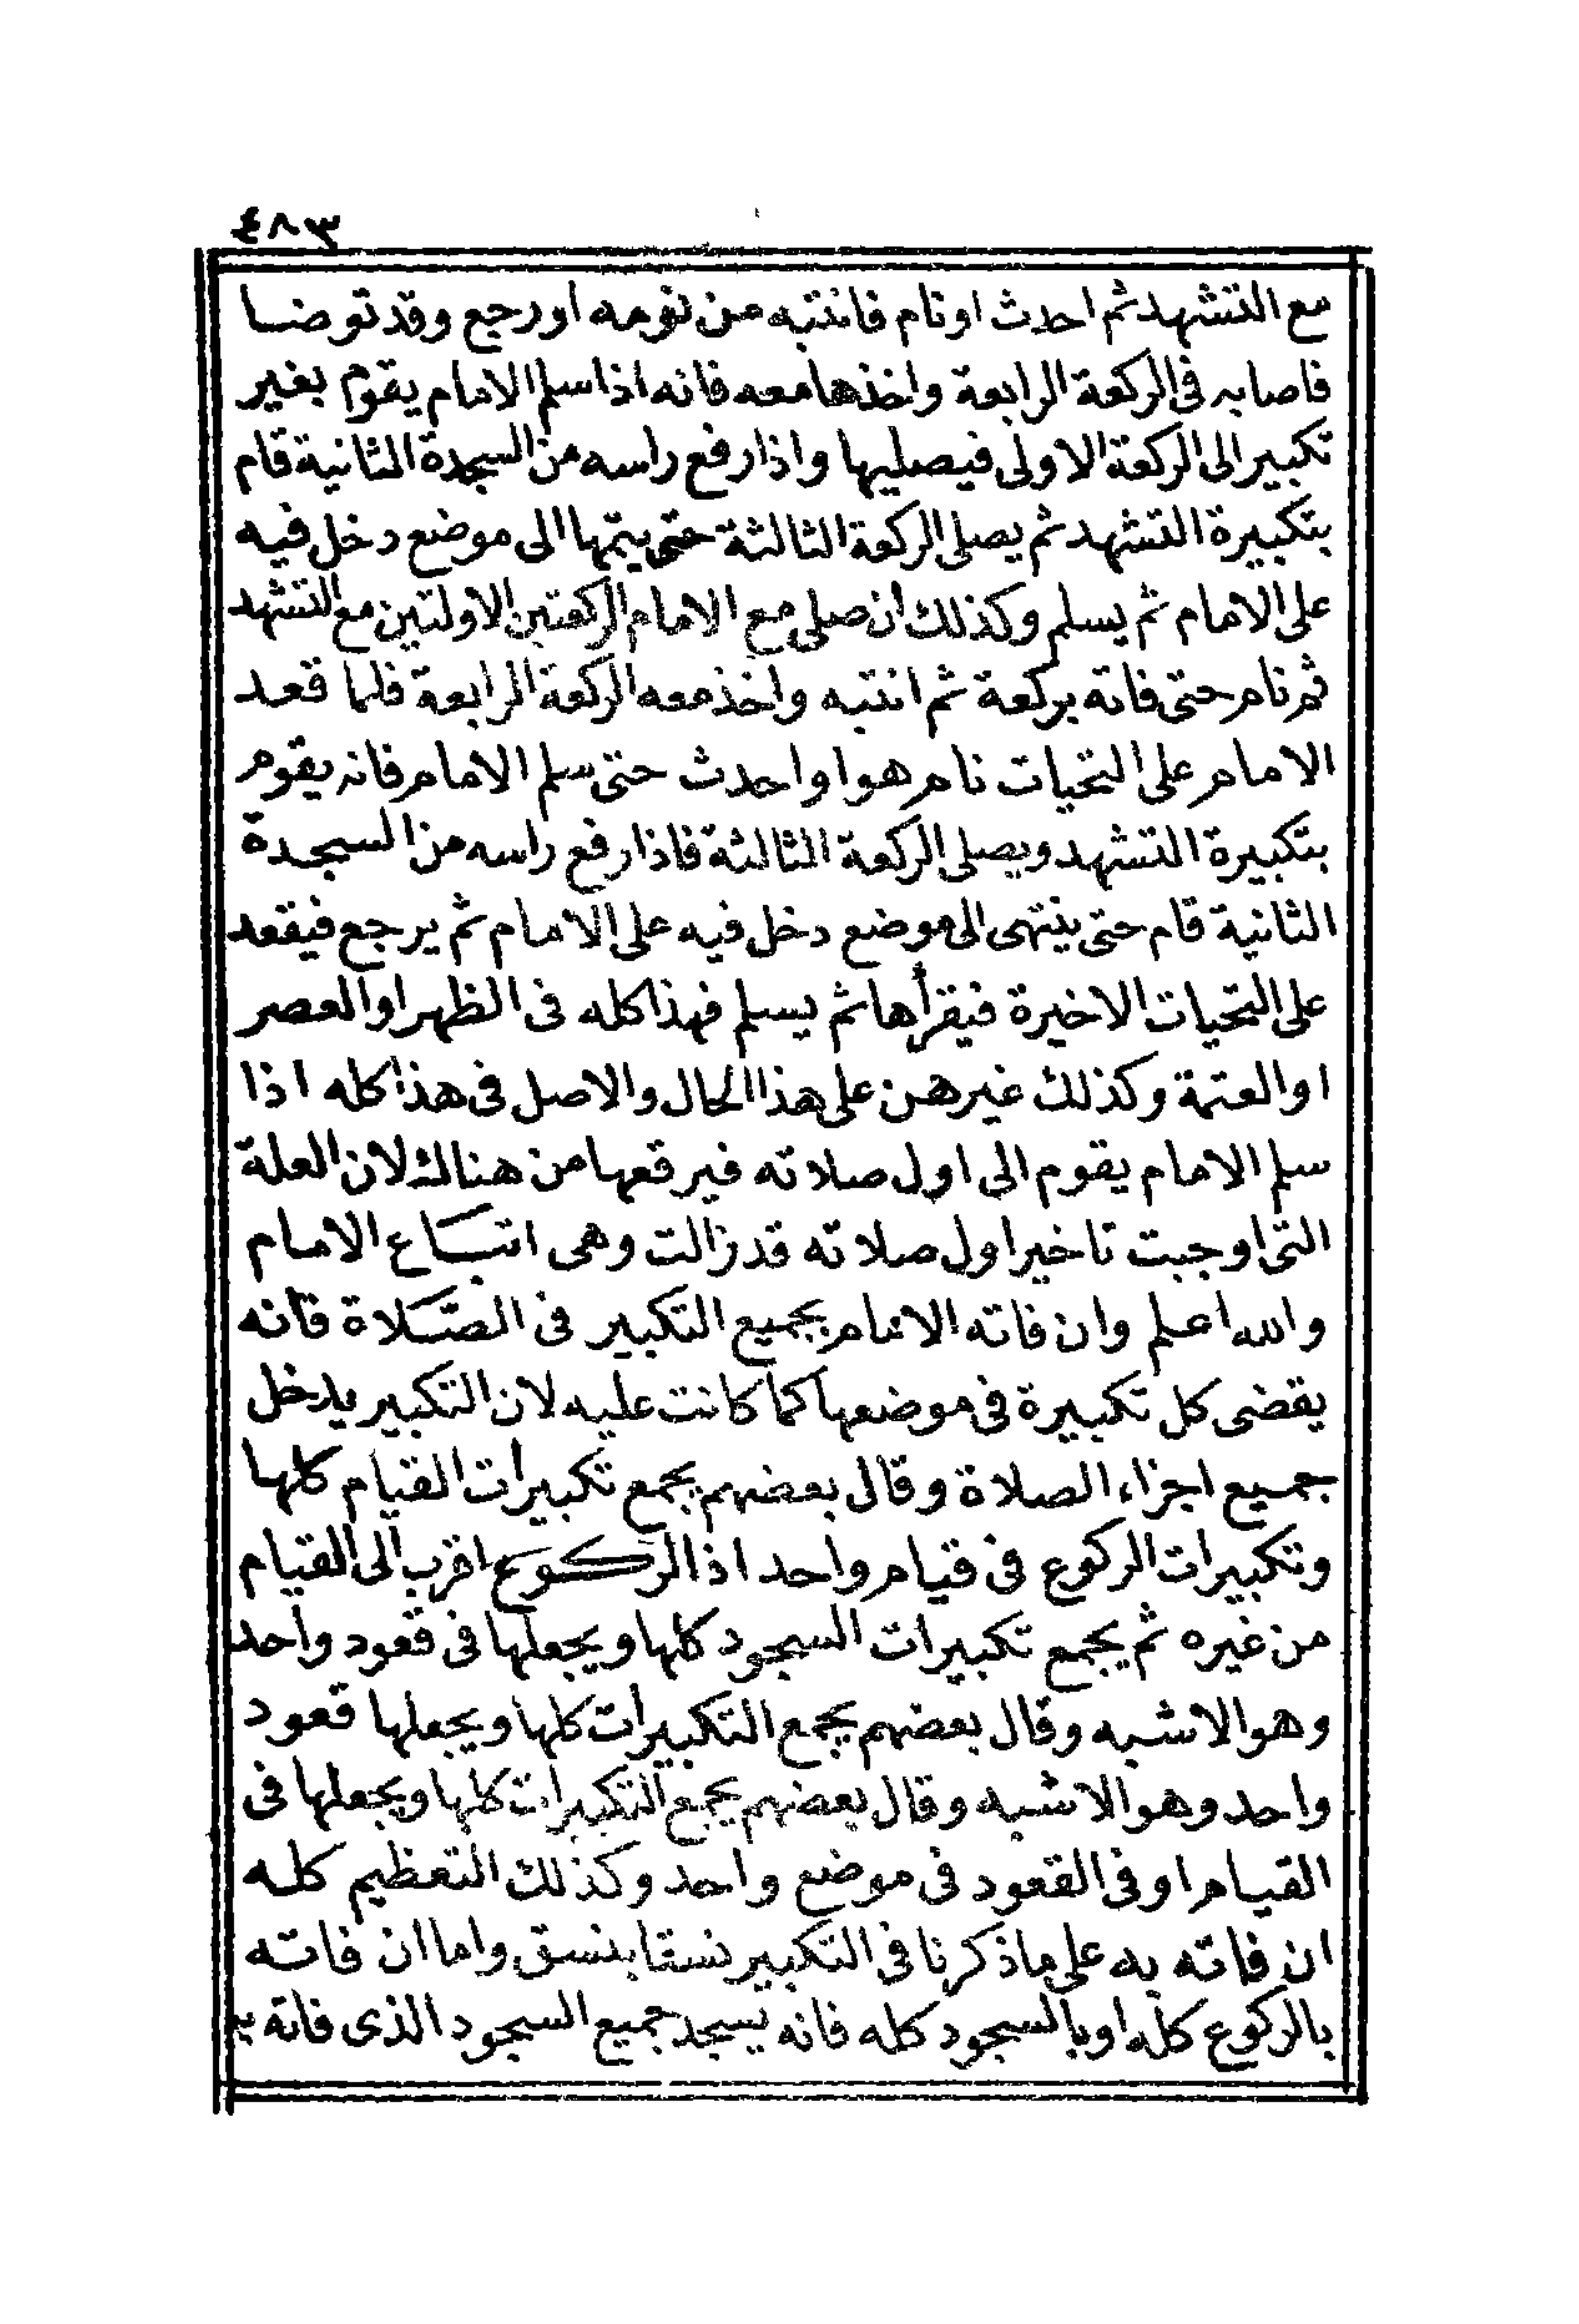 ٤٨٣
مع التشهد ثم احدث او نام فانتبه من نومه او رجع وقد توضا
فاصابه فى الركعة الرابعة واخذها معه فانه اذا سلم الامام يقوم بغير
تكبير الى الركعة الاولى فيصليها واذا رفع راسه من السجدة الثانية قام
بتكبيرة التشهد ثم يصلى الركعة الثالثة حتى يتمها الى موضع دخل فيه
على الامام ثم يسلم وكذلك ان صلى مع الامام الركعتين الاولتين مع التشهد
ثم نام حتى فاته بركعة ثم انتبه واخذ معه الركعة الرابعة فلما قعد
الامام على التحيات نام هو او احدث حتى سلم الامام فانه يقوم
بتكبيرة التشهد ويصلى الركعة الثالثة فاذا رفع راسه من السجدة
الثانية قام حتى ينتهى الى موضع دخل فيه على الامام ثم يرجع فيقعد
على التحيات الاخيرة فيقرأها ثم يسلم فهذا كله فى الظهر او العصر
او العتمة وكذلك غيرهن على هذا الحال والاصل فى هذا كله اذا
سلم الامام يقوم الى اول صلاته فيرقعها من هنالك لان العلة
التى اوجبت تاخير اول صلاته قد زالت وهى اتباع الامام
والله اعلم وان فاته الامام بجميع التكبير فى الصلاة فانه
يقضى كل تكبيرة فى موضعها كما كانت عليه لان التكبير يدخل
جميع اجزاء الصلاة وقال بعضهم يجمع تكبيرات القيام كلها
وتكبيرات الركوع فى قيام واحد اذ الركوع اقرب الى القيام
من غيره ثم يجمع تكبيرات السجود كلها ويجعلها فى قعود واحد
وهو الاشبه وقال بعضهم يجمع التكبيرات كلها ويجعلها قعود
واحد وهو الاشبه وقال بعضهم يجمع التكبيرات كلها ويجعلها فى
القيام او فى القعود فى موضع واحد وكذلك التعظيم كله
ان فاته به على ما ذكرنا فى التكبير نسقا بنسق واما ان فاته
بالركوع كله او بالسجود كله فانه يسجد جميع السجود الذى فاته به